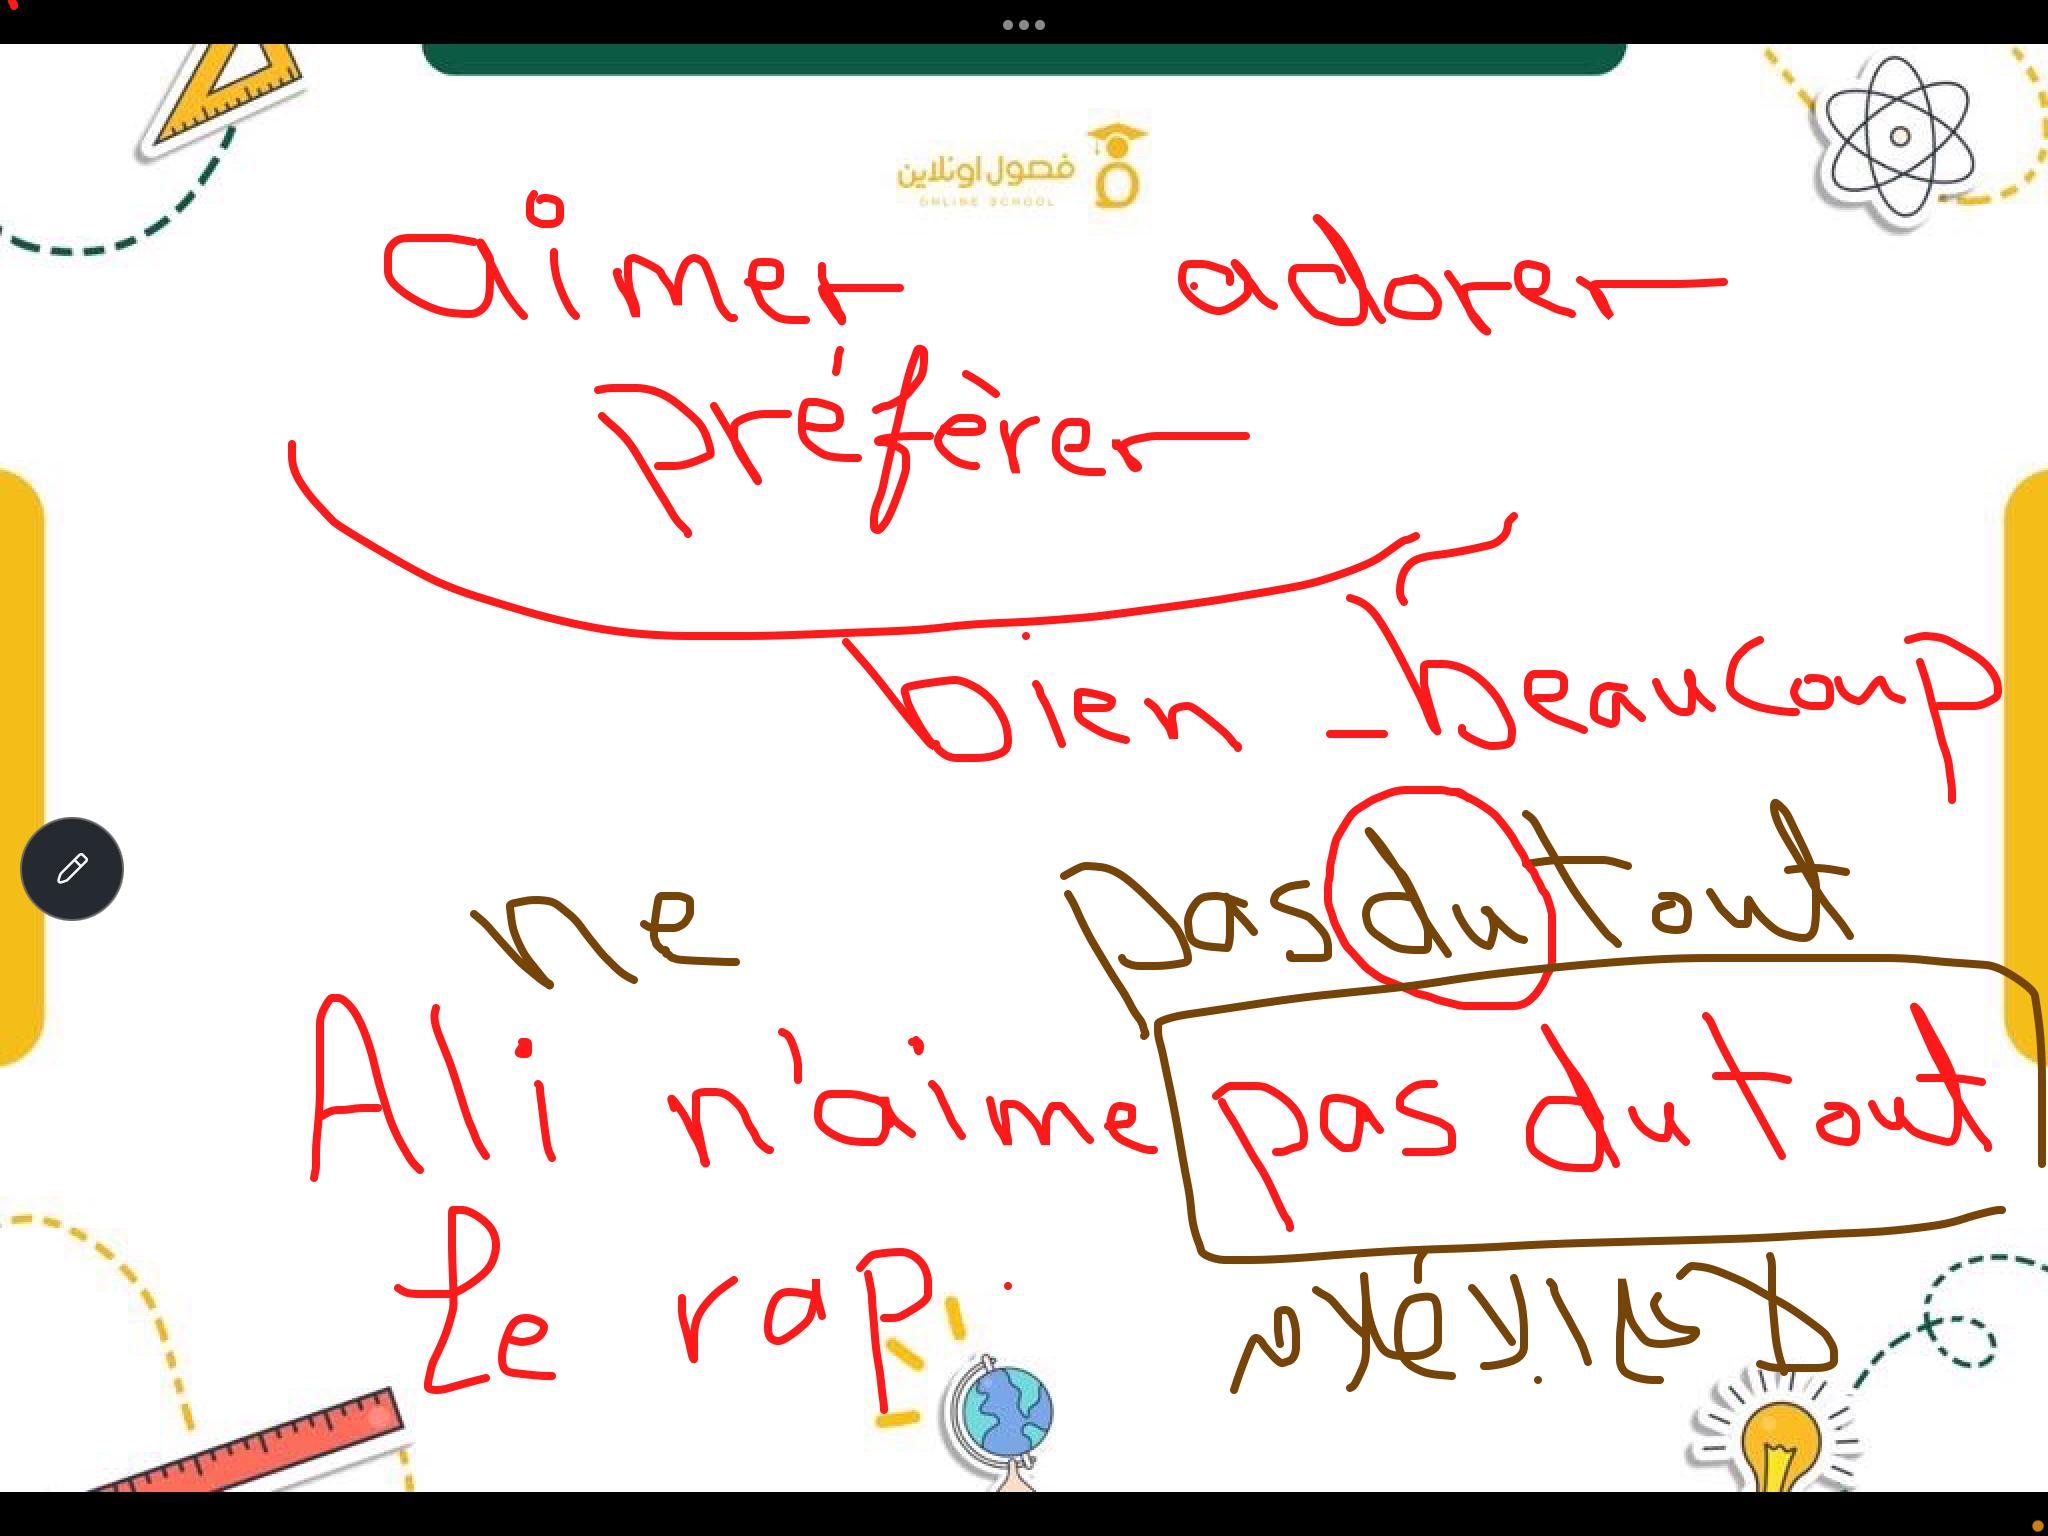 فصول اونلاين
ONLINE SCHOOL
aimer adorer
préfèrer
bien - beaucoup
ne pas du tout
Ali n'aime pas du tout
Le rap.